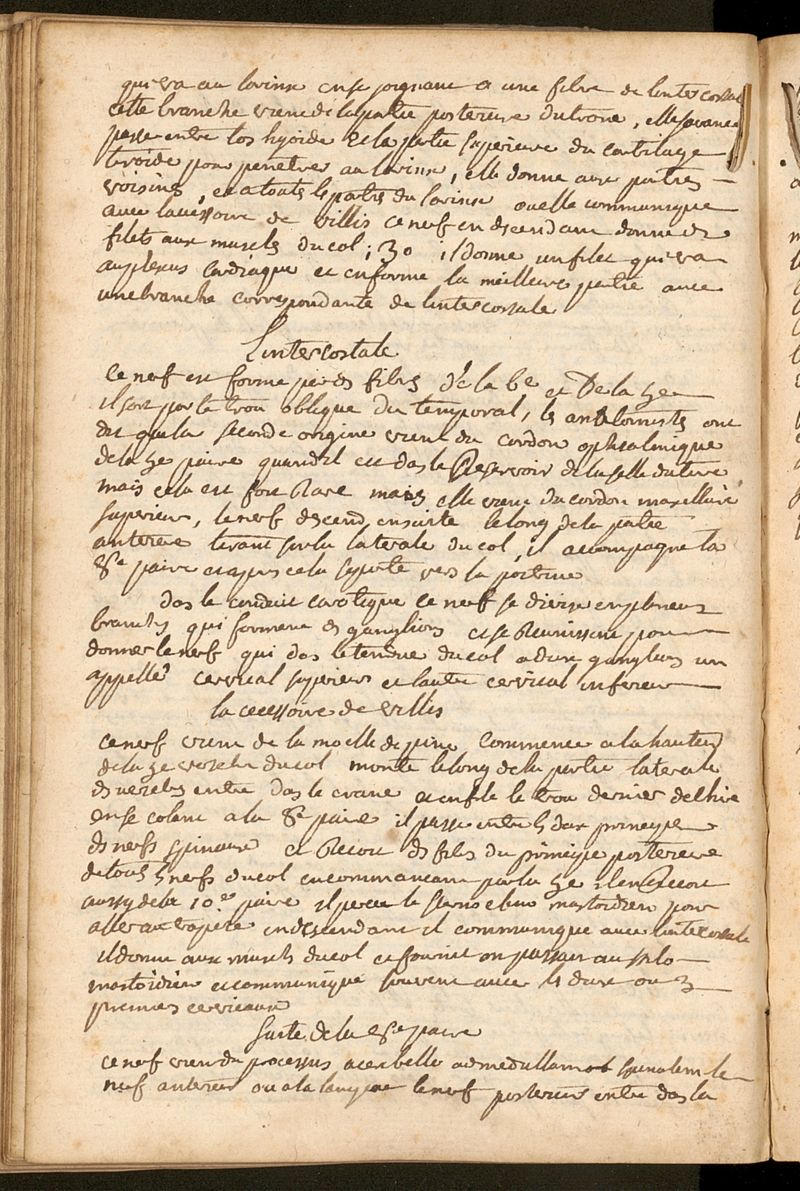 qui va au larinx en se joignant a une fibre de lintercostal
cette branche vient de la partie posterieure du trone, elle savance
passe entre los hyoide et la partie superieure du cartilage
tiroide pour penetrer au larinx, elle donne aux parties
voisines, et a touts les parties du larinx ou elle communique
avec lacessoire de villis ce nerf en descendant donne des
filets aux muscles du col; 30 il donne un filet qui va
au plexus cardiaque et en forme la meilleure partie avec
une branche correspondante de lintercostale
Lintercostale
ce nerf est forme par des filets de la 6e et De la 5e
il sort par le trou oblique du temporal, les anatomistes ont
dit que la seconde origine vient du cordon opthalmique
de la 5e paire quand il est dans le Reservoir de la selle du turc
mais cela est fort Rare mais elle vient du cordon maxellaire
superieur, le nerf descend ensuite le long de la partie
anterieure tirant sur la laterale du col, il acompagne la
8e paire et apres cela se porte vers la poitrine
Dans le conduit carotique ce nerf se divise en plusieurs
branches qui forment des ganglions et se Reunissent pour
donner le nerf qui dans letendue du col a deux ganglions un
appellé cervical superieur et lautre cervical inferieur
lacessoire de villis
ce nerf vient de la moelle depine commence a la hauteur
de la 5e vertebre du col monte le long de la partie laterale
des vertebres entre dans le crane et enfile le trou dernier dechiré
en se colant a la 8e paire il passe entre les deux principes
des nerfs spinaux et Recoit des filets du principe posterieur
de touts les nerfs du col en commancant par la 5e il en Recoit
aussy de la 10e paire il perce le sterno clino mastoidien pour
aller au trapeze en descendant il communique avec lintercostale
il donne aux muscles du col et fournit en passant au sterno
mastoidien et communique souvent avec les deux ou 3
premiers cervicaux
Suite de la 8e paire
ce nerf vient du processus a cerebello ad medullam spinalem le
nerf anterieur ou a la langue le nerf posterieur entre dans la